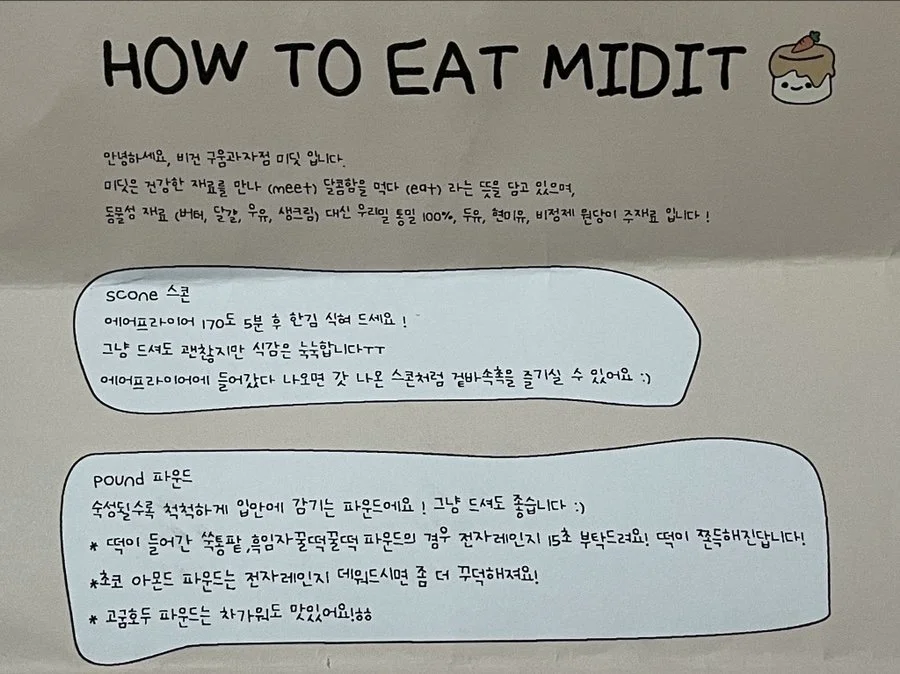 HOW TO EAT MIDIT
안녕하세요, 비건 구움과자점 미딧 입니다.
미딧은 건강한 재료를 만나 (meet) 달콤함을 먹다 (eat) 라는 뜻을 담고 있으며,
동물성 재료 (버터, 달걀, 우유, 생크림) 대신 우리밀 통밀 100%, 두유, 현미유, 비정제 원당이 주재료 입니다 !
scone 스콘
에어프라이어 170도 5분 후 한김 식혀 드세요 !
그냥 드셔도 괜찮지만 식감은 눅눅합니다ㅜㅜ
에어프라이어에 들어갔다 나오면 갓 나온 스콘처럼 겉바속촉을 즐기실 수 있어요 :)
pound 파운드
숙성될수록 척척하게 입안에 감기는 파운드에요 ! 그냥 드셔도 좋습니다 :)
* 떡이 들어간 쑥통팥 ,흑임자꿀떡꿀떡 파운드의 경우 전자레인지 15초 부탁드려요! 떡이 쫀득해진답니다!
*초코 아몬드 파운드는 전자레인지 데워드시면 좀 더 꾸덕해져요!
* 고굼호두 파운드는 차가워도 맛있어요!ㅎㅎ